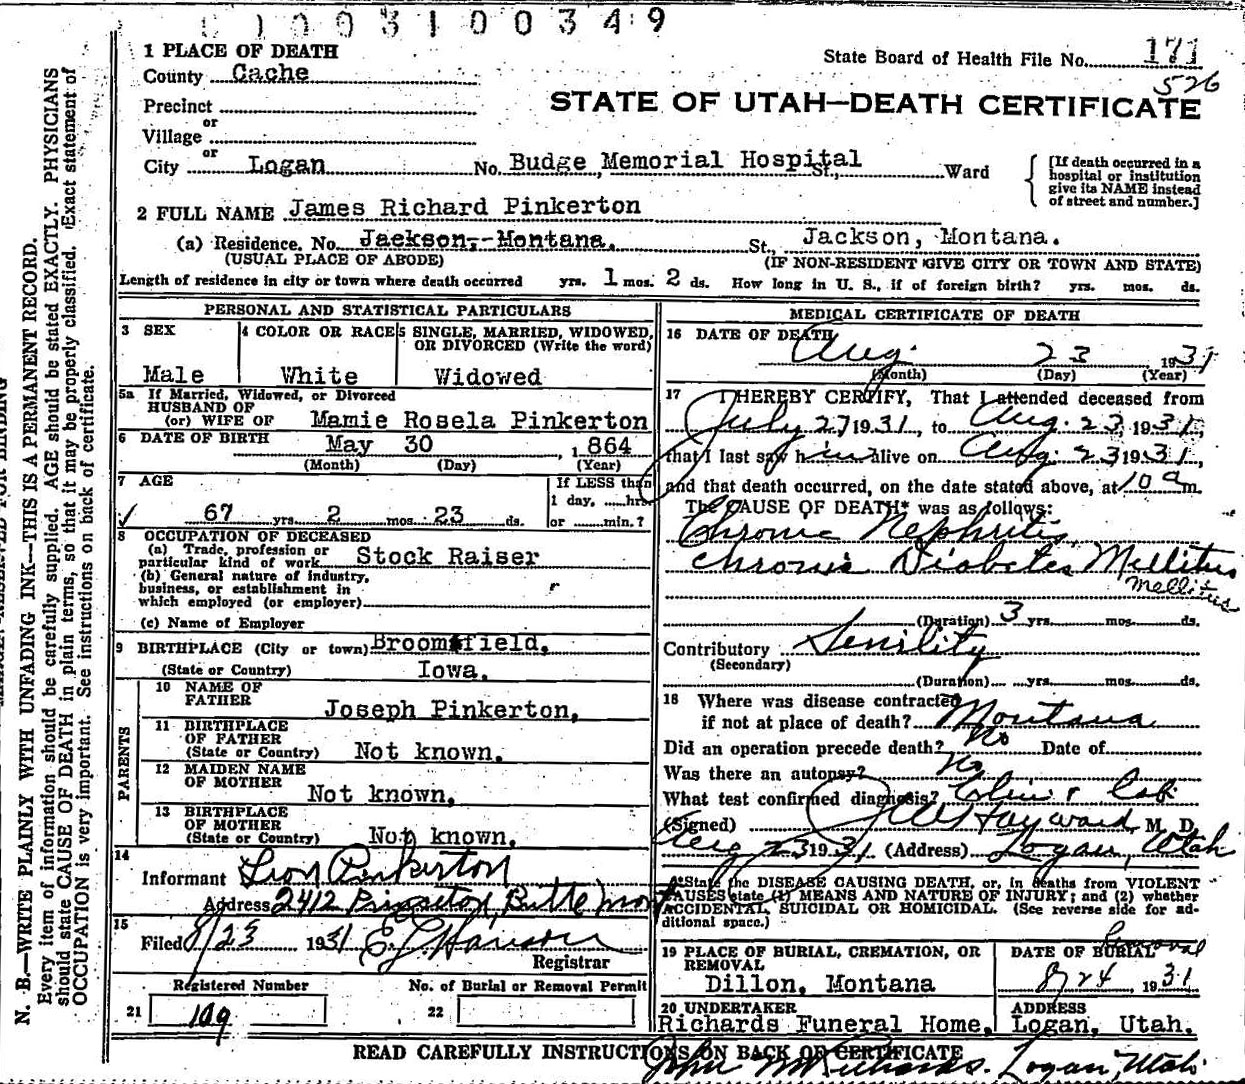 1003100349
1 PLACE OF DEATH
State Board of Health File No. 171
County Cache
526
STATE OF UTAH—DEATH CERTIFICATE
Precinct
or
Village
or
City Logan No. Budge Memorial Hospital St., Ward
[If death occurred in a
hospital or institution
give its NAME instead
of street and number.]
2 FULL NAME James Richard Pinkerton
(a) Residence. No. Jackson, Montana. St., Jackson, Montana.
(USUAL PLACE OF ABODE) (IF NON-RESIDENT GIVE CITY OR TOWN AND STATE)
Length of residence in city or town where death occurred yrs. 1 mos. 2 ds. How long in U. S., if of foreign birth? yrs. mos. ds.
PERSONAL AND STATISTICAL PARTICULARS
3 SEX
Male
4 COLOR OR RACE
White
5 SINGLE, MARRIED, WIDOWED,
OR DIVORCED (Write the word)
Widowed
5a If Married, Widowed, or Divorced
HUSBAND OF
(or) WIFE OF Mamie Rosela Pinkerton
6 DATE OF BIRTH May 30, 1864
(Month) (Day) (Year)
7 AGE
67 yrs. 2 mos. 23 ds.
If LESS than
1 day, hrs.
or min.?
8 OCCUPATION OF DECEASED
(a) Trade, profession or
particular kind of work Stock Raiser
(b) General nature of industry,
business, or establishment in
which employed (or employer)
(c) Name of Employer
9 BIRTHPLACE (City or town) Broomsfield,
(State or Country) Iowa.
PARENTS
10 NAME OF
FATHER Joseph Pinkerton,
11 BIRTHPLACE
OF FATHER
(State or Country) Not known.
12 MAIDEN NAME
OF MOTHER
Not known,
13 BIRTHPLACE
OF MOTHER
(State or Country) Not known.
14
Informant Leon Pinkerton
Address 2412 Princeton, Butte Mont
15
Filed 8/23 1931 E. L. Hanson
Registrar
Registered Number
21 109
No. of Burial or Removal Permit
22
MEDICAL CERTIFICATE OF DEATH
16 DATE OF DEATH
Aug. 23 1931
(Month) (Day) (Year)
17 I HEREBY CERTIFY, That I attended deceased from
July 27 1931, to Aug. 23, 1931,
that I last saw him alive on Aug. 23 1931,
and that death occurred, on the date stated above, at 10 a m.
The CAUSE OF DEATH* was as follows:
Chronic Nephritis
Chronic Diabetes Mellitus
Mellitus
(Duration) 3 yrs. mos. ds.
Contributory Senility
(Secondary)
(Duration) yrs. mos. ds.
18 Where was disease contracted
if not at place of death? Montana
Did an operation precede death? No Date of
Was there an autopsy? No
What test confirmed diagnosis? Clin. & Lab.
(Signed) Hayward, M. D.
Aug 23 1931 (Address) Logan, Utah
*State the DISEASE CAUSING DEATH, or, in deaths from VIOLENT
CAUSES state (1) MEANS AND NATURE OF INJURY; and (2) whether
ACCIDENTAL, SUICIDAL OR HOMICIDAL. (See reverse side for ad-
ditional space.)
19 PLACE OF BURIAL, CREMATION, OR
REMOVAL
Dillon, Montana
Removal
DATE OF BURIAL
8/24 1931
20 UNDERTAKER
Richards Funeral Home,
ADDRESS
Logan, Utah.
READ CAREFULLY INSTRUCTIONS ON BACK OF CERTIFICATE
John W Richards. Logan, Utah.
N. B.—WRITE PLAINLY WITH UNFADING INK—THIS IS A PERMANENT RECORD.
Every item of information should be carefully supplied. AGE should be stated EXACTLY. PHYSICIANS
should state CAUSE OF DEATH in plain terms, so that it may be properly classified. Exact statement of
OCCUPATION is very important. See instructions on back of certificate.